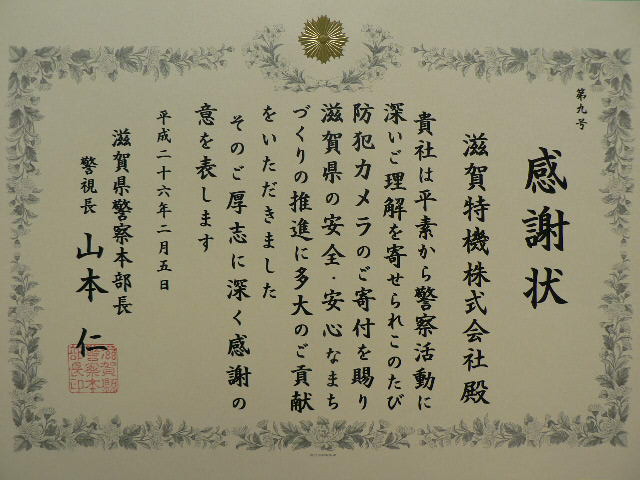 第九号
感謝状
滋賀特機株式会社殿
貴社は平素から警察活動に
深いご理解を寄せられこのたび
防犯カメラのご寄付を賜り
滋賀県の安全・安心なまち
づくりの推進に多大のご貢献
をいただきました
そのご厚志に深く感謝の
意を表します
平成二十六年二月五日
滋賀県警察本部長
警視長 山本 仁
滋賀県
警察本
部長印